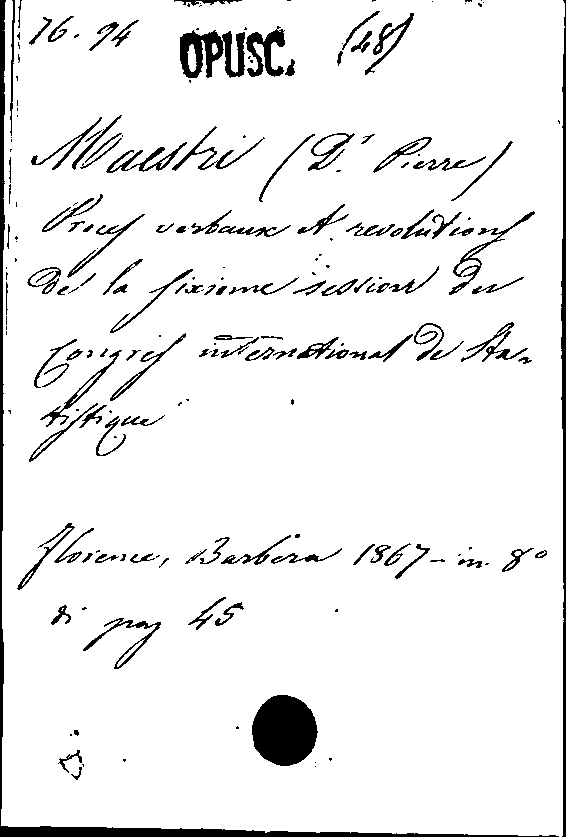 76. 94 OPUSC. (48)
Maestri (Dr. Pierre)
Proces verbaux et revolutions
de la sixieme session du
Congres international de Sta-
tistique
Florence, Barbèra 1867 - in 8º
di pag 45